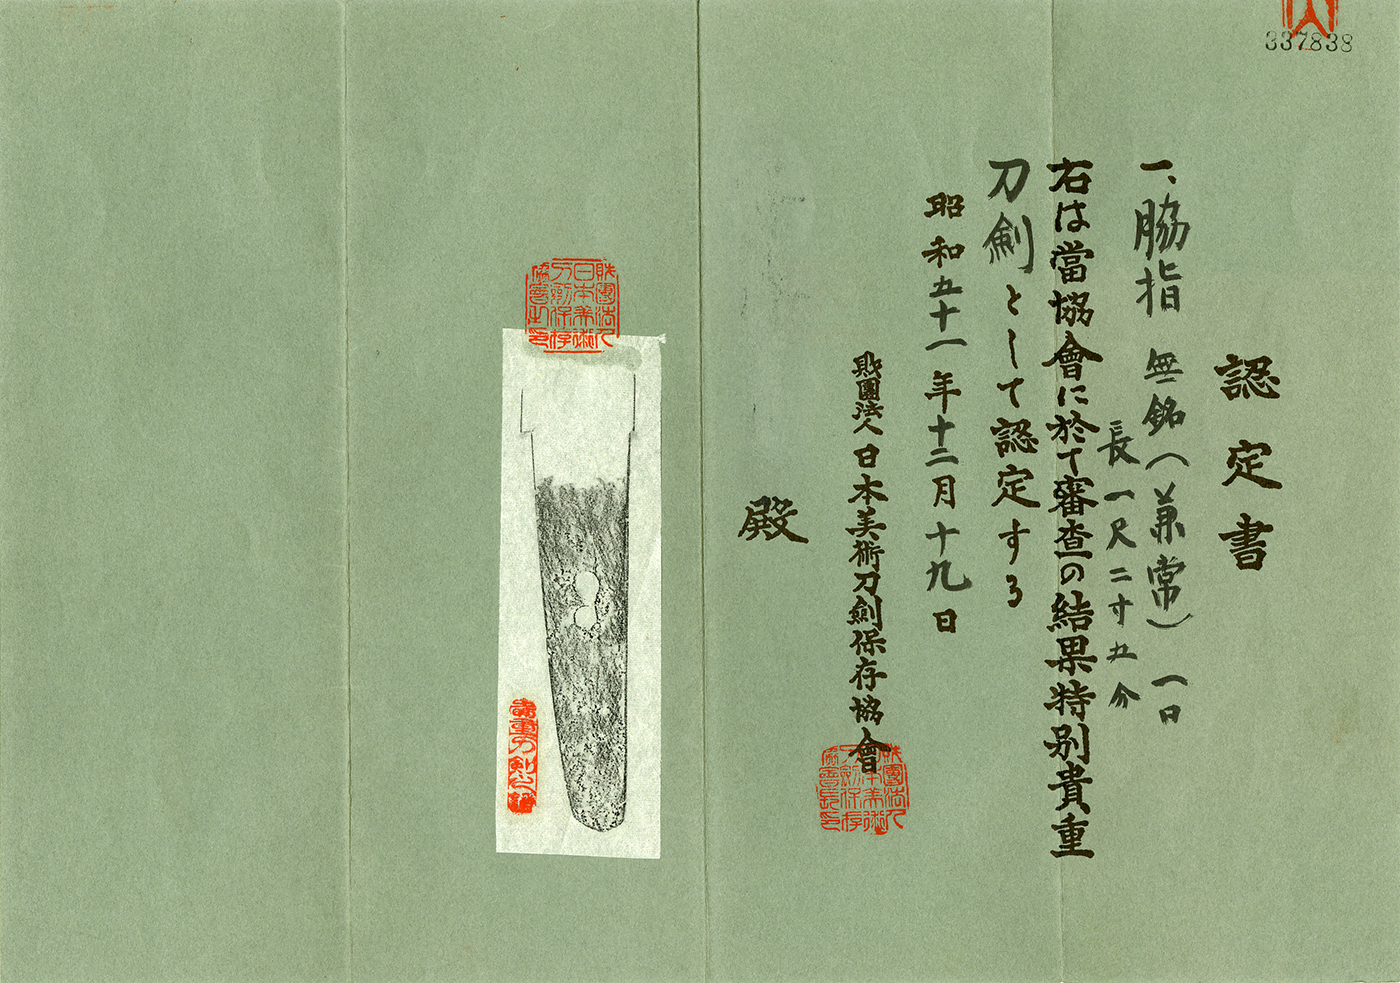 337838
認定書
一、脇指 無銘(兼常) 一口
長一尺二寸五分
右は當協會に於て審査の結果特別貴重
刀劍として認定する
昭和五十一年十二月十九日
財團法人日本美術刀劍保存協會
殿
財團法人
日本美術
刀劍保存
協會長印
財團法人
日本美術
刀劍保存
協會之印